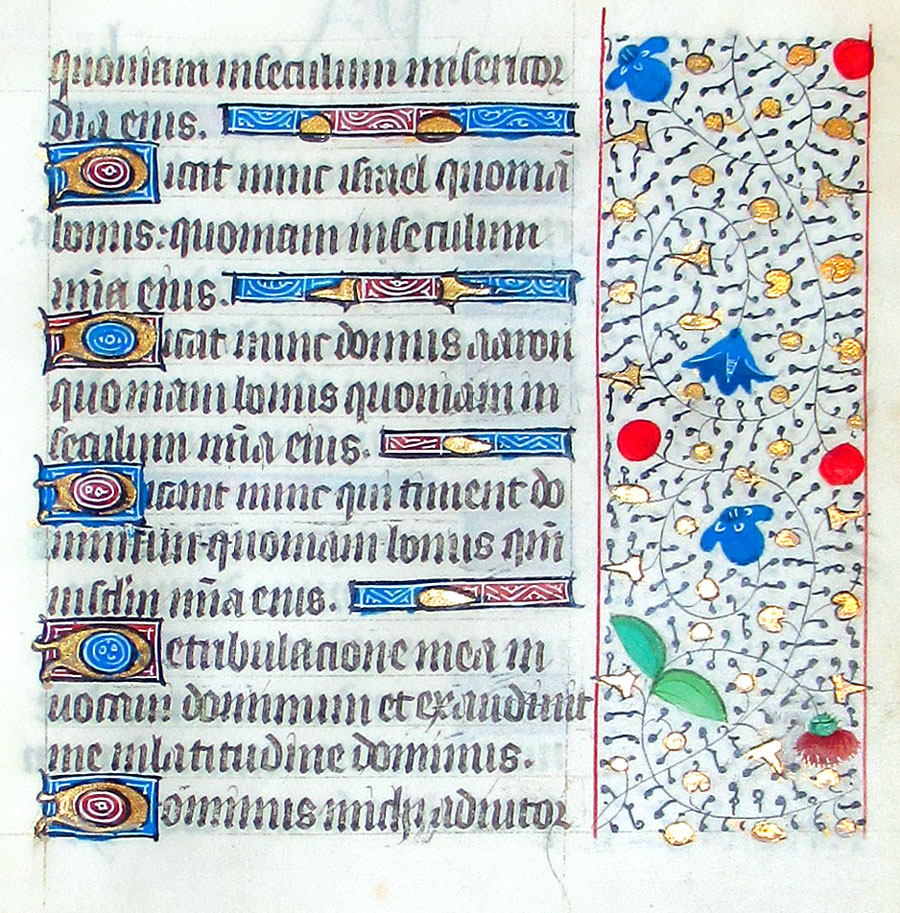 quoniam in seculum misericor
dia eius.
Dicat nunc israel quoniā
bonus: quoniam in seculum
mīa eius.
Dicat nunc domus aaron
quoniam bonus quoniam in
seculum mīa eius.
Dicant nunc qui timent do
minum quoniam bonus qm̄
in sclm mīa eius.
De tribulacione mea in
uocaui dominum et exaudiuit
me in latitudine dominus.
Dominus michi adiutor